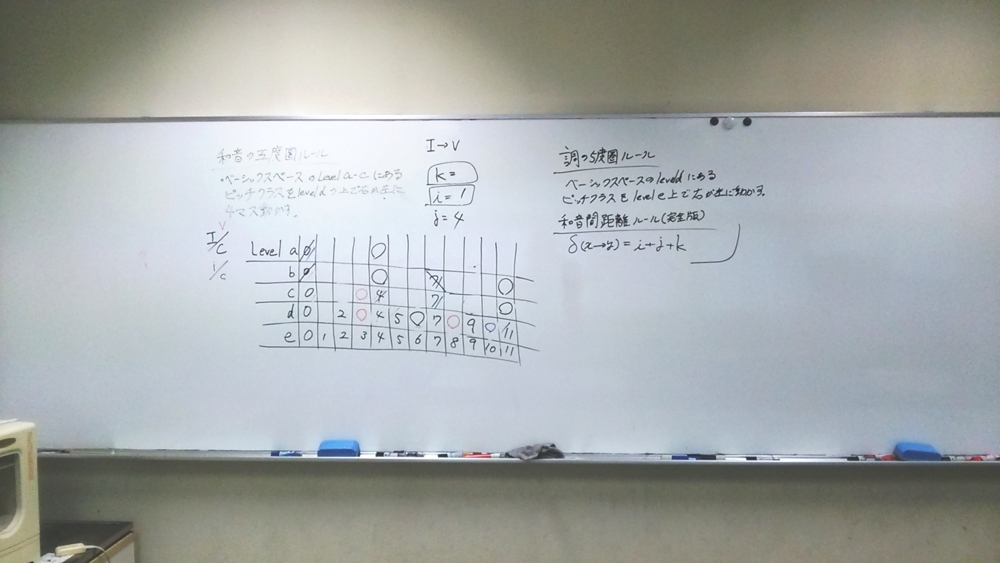 和音の五度圏ルール
・ベーシックスペースのLevel a-cにある
ピッチクラスをlevel dの上で右か左に
4マス動かす。
I→V
k=
i=1
j=4
調の5度圏ルール
ベーシックスペースのlevel dにある
ピッチクラスをlevel e上で右か左に動かす。
和音間距離ルール(完全版)
δ(x→y)=i+j+k
I/C
i/c
Level a 0 ○
b 0 ○ 7 ○
c 0 ○ 4 7 ○
d 0 2 ○ 4 5 ○ 7 ○ 9 ○ 11
e 0 1 2 3 4 5 6 7 8 9 10 11